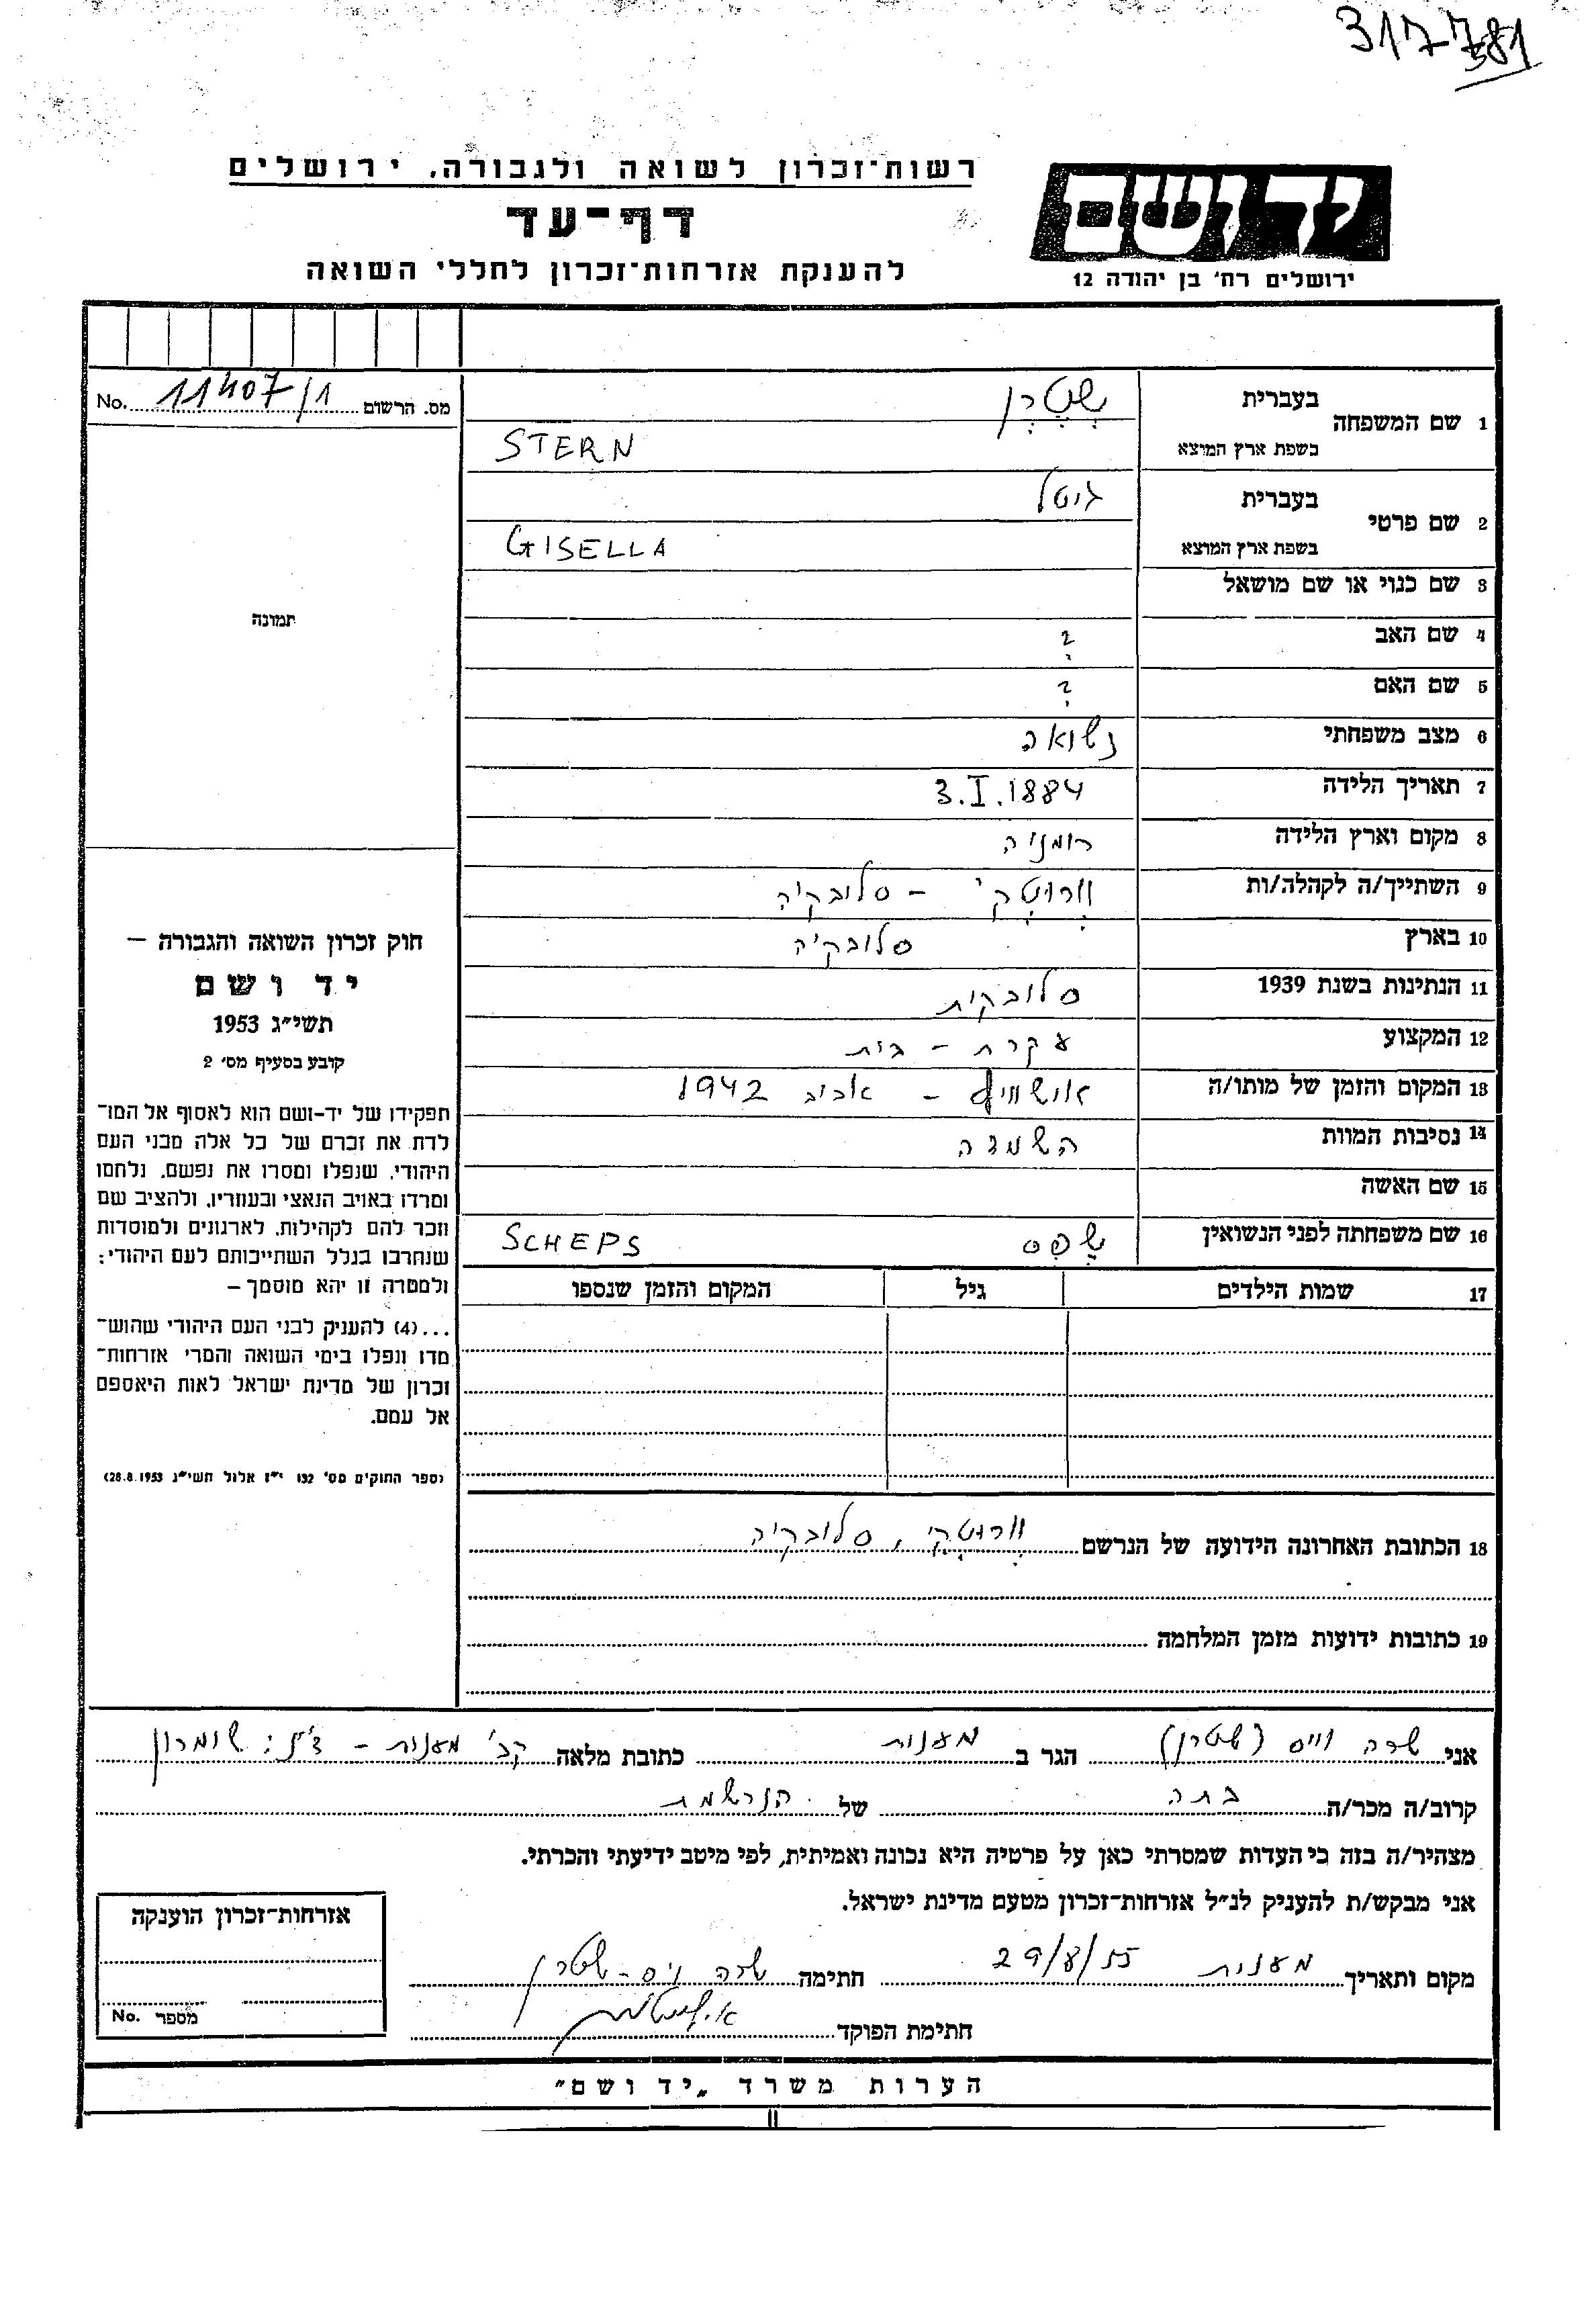 317781
רשות־זכרון לשואה ולגבורה, ירושלים
יד ושם
דף־עד
ירושלים רח' בן יהודה 12
להענקת אזרחות־זכרון לחללי השואה
1 שם המשפחה בעברית שטרן
בשפת ארץ המוצא STERN
מס. הרשום 11407/1 No.
2 שם פרטי בעברית גיטל
בשפת ארץ המוצא GISELLA
3 שם כנוי או שם מושאל
תמונה
4 שם האב ?
5 שם האם ?
6 מצב משפחתי נשואה
7 תאריך הלידה 3.I.1884
8 מקום וארץ הלידה רומניה
9 השתייך/ה לקהלה/ות וורוטקי – סלובקיה
10 בארץ סלובקיה
11 הנתינות בשנת 1939 סלובקית
12 המקצוע עקרת – בית
13 המקום והזמן של מותו/ה אושוויץ – אביב 1942
14 נסיבות המוות השמדה
15 שם האשה
16 שם משפחתה לפני הנשואין שפס SCHEPS
17 שמות הילדים גיל המקום והזמן שנספו
חוק זכרון השואה והגבורה –
יד ושם
תשי״ג 1953
קובע בסעיף מס' 2
תפקידו של יד-ושם הוא לאסוף אל המו־
לדת את זכרם של כל אלה מבני העם
היהודי, שנפלו ומסרו את נפשם, נלחמו
ומרדו באויב הנאצי ובעוזריו, ולהציב שם
וזכר להם לקהילות, לארגונים ולמוסדות
שנחרבו בגלל השתייכותם לעם היהודי;
ולמטרה זו יהא מוסמך –
...(4) להעניק לבני העם היהודי שהוש־
מדו ונפלו בימי השואה והמרי אזרחות־
זכרון של מדינת ישראל לאות היאספם
אל עמם.
(ספר החוקים מס' 132 י״ז אלול תשי״ג 28.8.1953)
18 הכתובת האחרונה הידועה של הנרשם וורוטקי, סלובקיה
19 כתובות ידועות מזמן המלחמה
אני שרה וייס (שטרן) הגר ב מענית כתובת מלאה קב' מענית – ד״נ: שומרון
קרוב/ה מכר/ה בתה של הנרשמת
מצהיר/ה בזה כי העדות שמסרתי כאן על פרטיה היא נכונה ואמיתית, לפי מיטב ידיעתי והכרתי.
אני מבקש/ת להעניק לנ״ל אזרחות־זכרון מטעם מדינת ישראל.
מקום ותאריך מענית 29/8/55 חתימה שרה ויס-שטרן
חתימת הפוקד
אזרחות־זכרון הוענקה
מספר No.
הערות משרד „יד ושם״